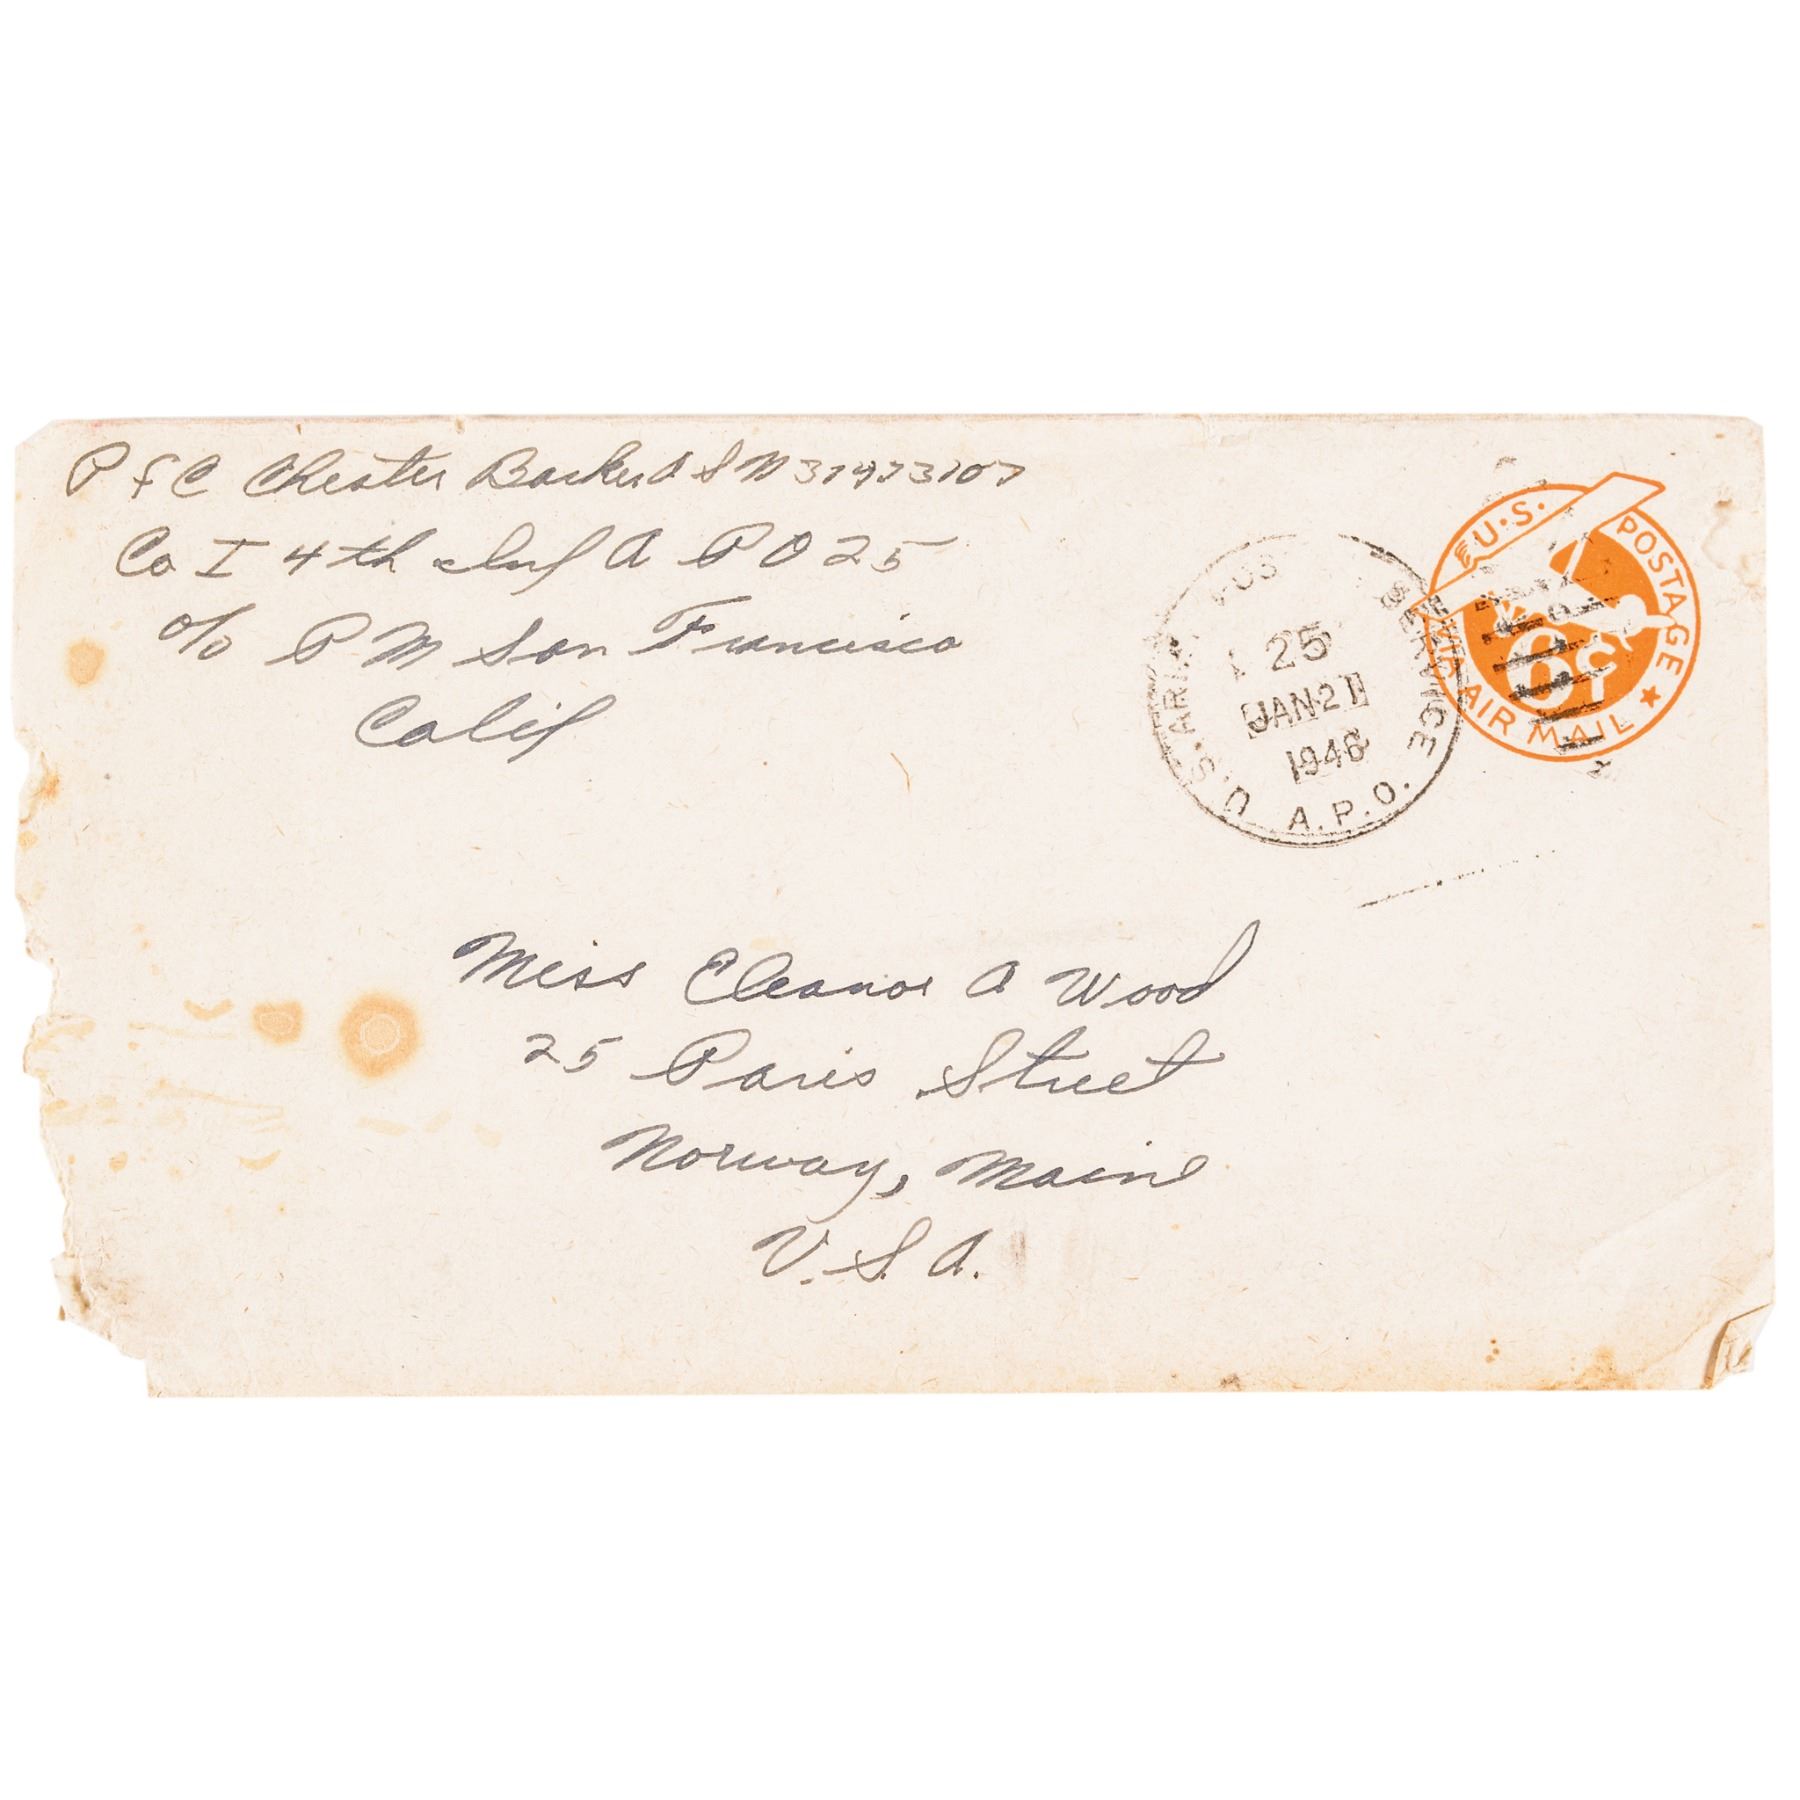 PfC Chester Barker A S N 31473107
Co I 4th Inf A P O 25
c/o P M San Francisco
Calif
U.S. ARMY POS SERVICE
25
JAN 21
1946
A.P.O.
U.S. POSTAGE
6¢
AIR MAIL
Miss Eleanor A Wood
25 Paris Street
Norway, Maine
U.S.A.